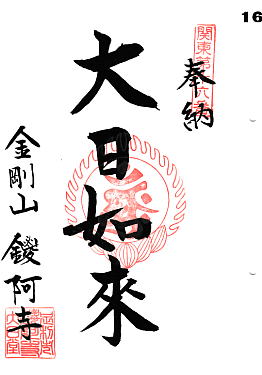 16
奉納
大日如來
金剛山 鑁阿寺